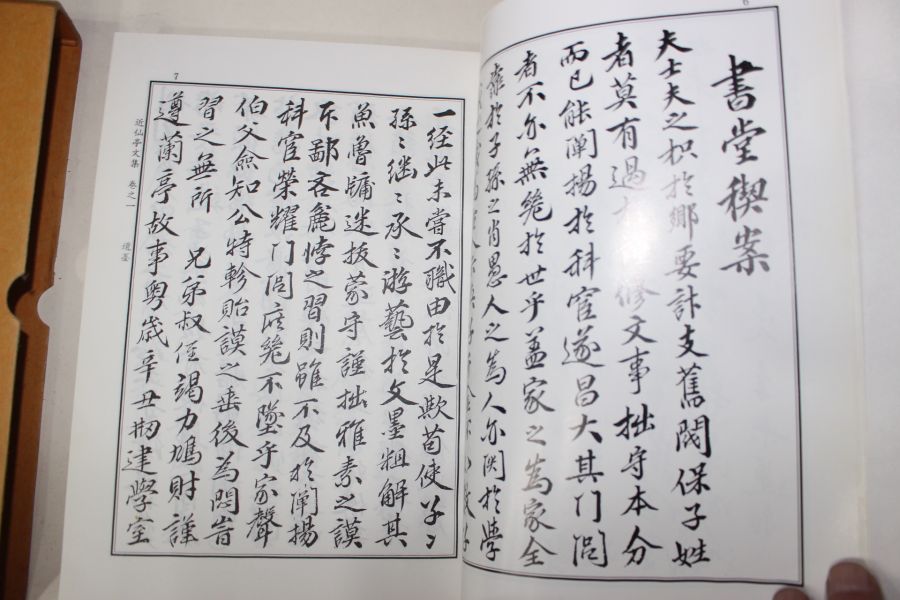 6
書堂稧案
夫士夫之枳於鄉要計支舊閥保子姓
者莫有過 修文事拙守本分
而已能闡揚於科宦遂昌大其门閭
者不尒無㡬於世乎盖家之為家全
於子孫之肖愚人之為人尒関於學
7
一经此未嘗不職由於是欤苟使子〻
孫〻継〻承〻游藝於文墨粗解其
魚魯牗迷拔蒙守謹拙雅素之謨
斥鄙吝麁悖之習則雖不及於闡揚
科宦榮耀门閭庶㡬不墜乎家聲
伯父僉知公特軫貽謨之垂後為悶昔
習之無所 兄弟叔侄竭力鳩財謹
遵蘭亭故事粤歳辛丑刱建學室
近仙亭文集 卷之一 遺墨